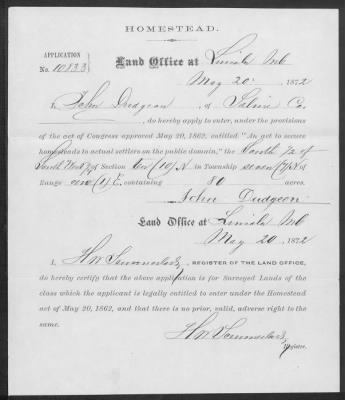 HOMESTEAD.
APPLICATION
No. 10823
Land Office at Lincoln Neb
May 20 1872
I, John Dudgeon, of Saline Co.
, do hereby apply to enter, under the provisions
of the act of Congress approved May 20, 1862, entitled "An act to secure
homesteads to actual settlers on the public domain," the South ½ of
South West ¼ of Section ten (10) in Township seven (7) N of
Range one (1) E, containing 80 acres.
John Dudgeon
Land Office at Lincoln Neb
May 20 1872
I, REGISTER OF THE LAND OFFICE,
do hereby certify that the above application is for Surveyed Lands of the
class which the applicant is legally entitled to enter under the Homestead
act of May 20, 1862, and that there is no prior, valid, adverse right to the
same.
Register.